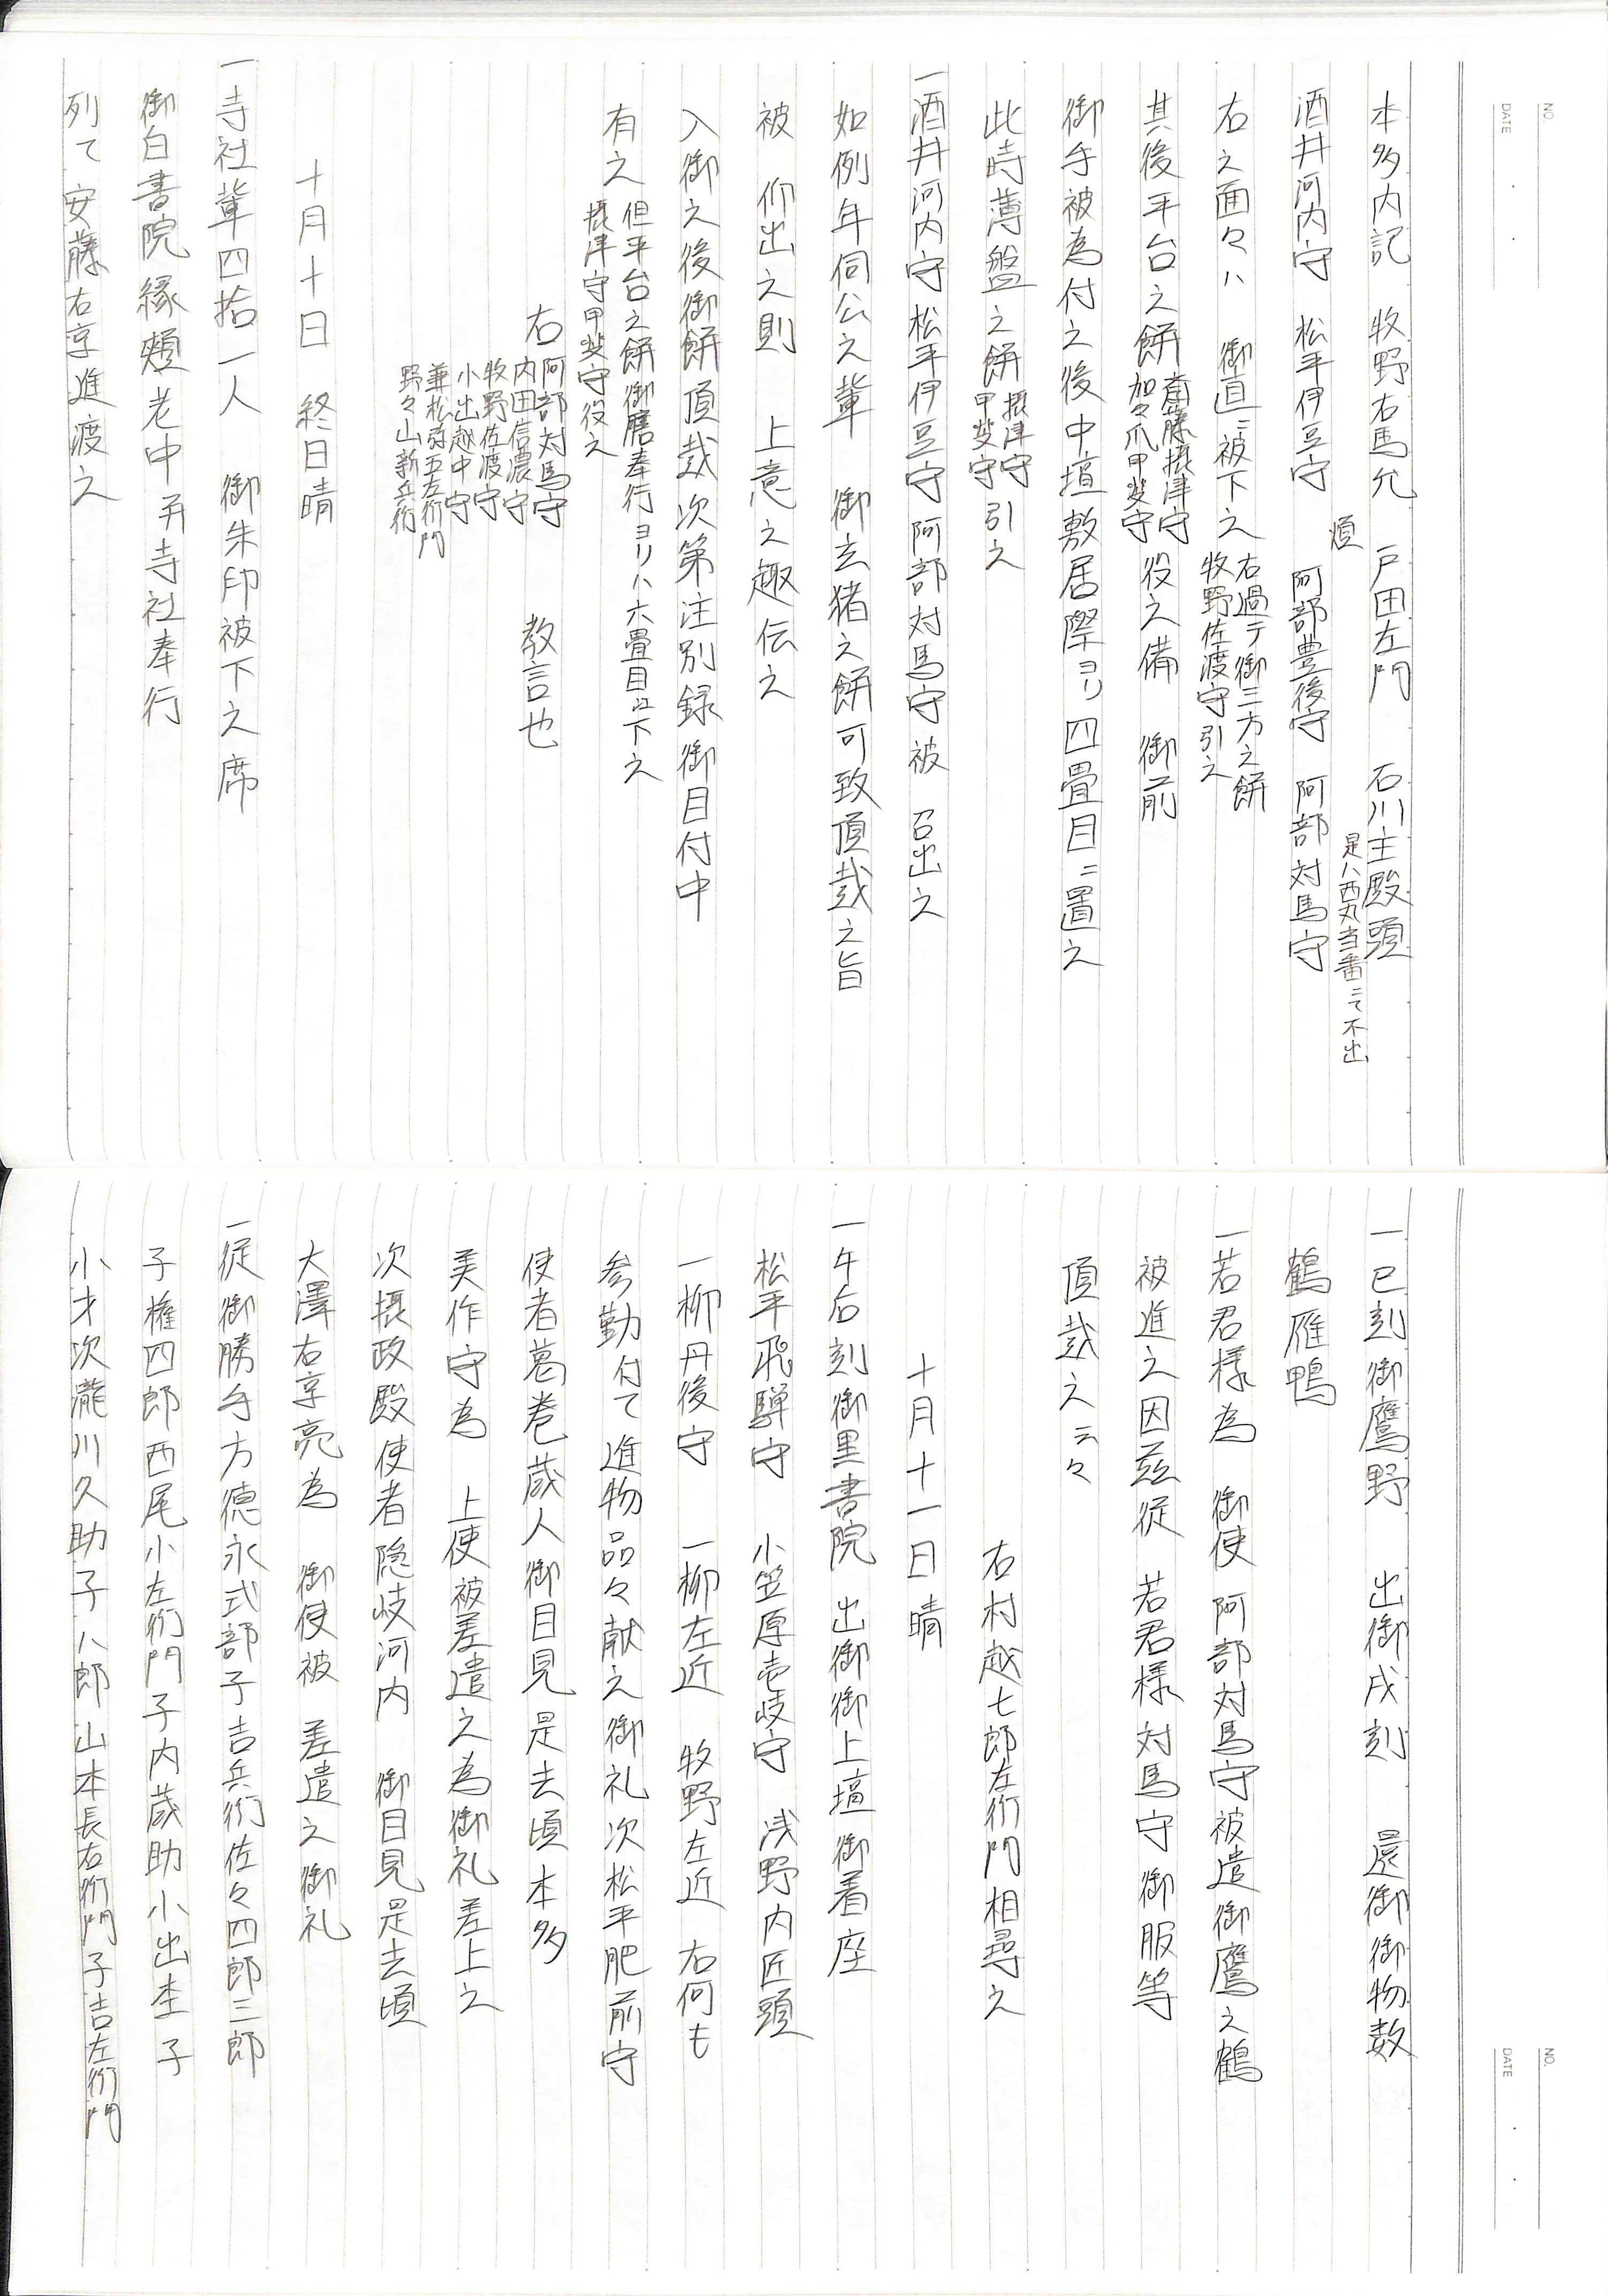 NO.
DATE
本多内記　牧野右馬允　戸田左門　石川主殿頭
是ハ西丸当番ニて不出
煩
酒井河内守　松平伊豆守　阿部豊後守　阿部対馬守
右之面々ハ　御直ニ被下之
右過テ御三方之餅
牧野佐渡守引之
其後平台之餅
斎藤摂津守
加々爪甲斐守
役之備　御前
御手被為付之後中壇敷居際ヨリ四畳目ニ置之
此時薄盤之餅
摂津守
甲斐守
引之
一酒井河内守松平伊豆守阿部対馬守被　召出之
如例年伺公之輩　御玄猪之餅可致頂戴之旨
被　仰出之則　上意之趣伝之
入御之後御餅頂戴次第注別録御目付中
有之
但平台之餅御膳奉行ヨリハ六畳目江下之
摂津守甲斐守役之
右
阿部対馬守
内田信濃守
牧野佐渡守
小出越中守
兼松弥五左衛門
野々山新兵衛
教言也
十月十日　終日晴
一寺社輩四拾一人　御朱印被下之席
御白書院縁頬老中并寺社奉行
列て安藤右京進渡之
NO.
DATE
一巳刻御鷹野　出御戌刻　還御御物数
鶴雁鴨
一若君様為　御使　阿部対馬守被遣御鷹之鶴
被進之因茲従　若君様対馬守御服等
頂戴之云々
右村越七郎左衛門相尋之
十月十一日晴
一午后刻御黒書院　出御御上壇御着座
松平飛騨守　小笠原壱岐守　浅野内匠頭
一柳丹後守　一柳左近　牧野左近　右何も
参勤付て進物品々献之御礼次松平肥前守
使者葛巻蔵人御目見是去頃本多
美作守為　上使被差遣之為御礼差上之
次摂政殿使者隠岐河内　御目見是去頃
大澤右京亮為　御使被　差遣之御礼
一従御勝手方徳永式部子吉兵衛佐々四郎三郎
子権四郎西尾小左衛門子内蔵助小出杢子
小才次瀧川久助子八郎山本長右衛門子吉左衛門